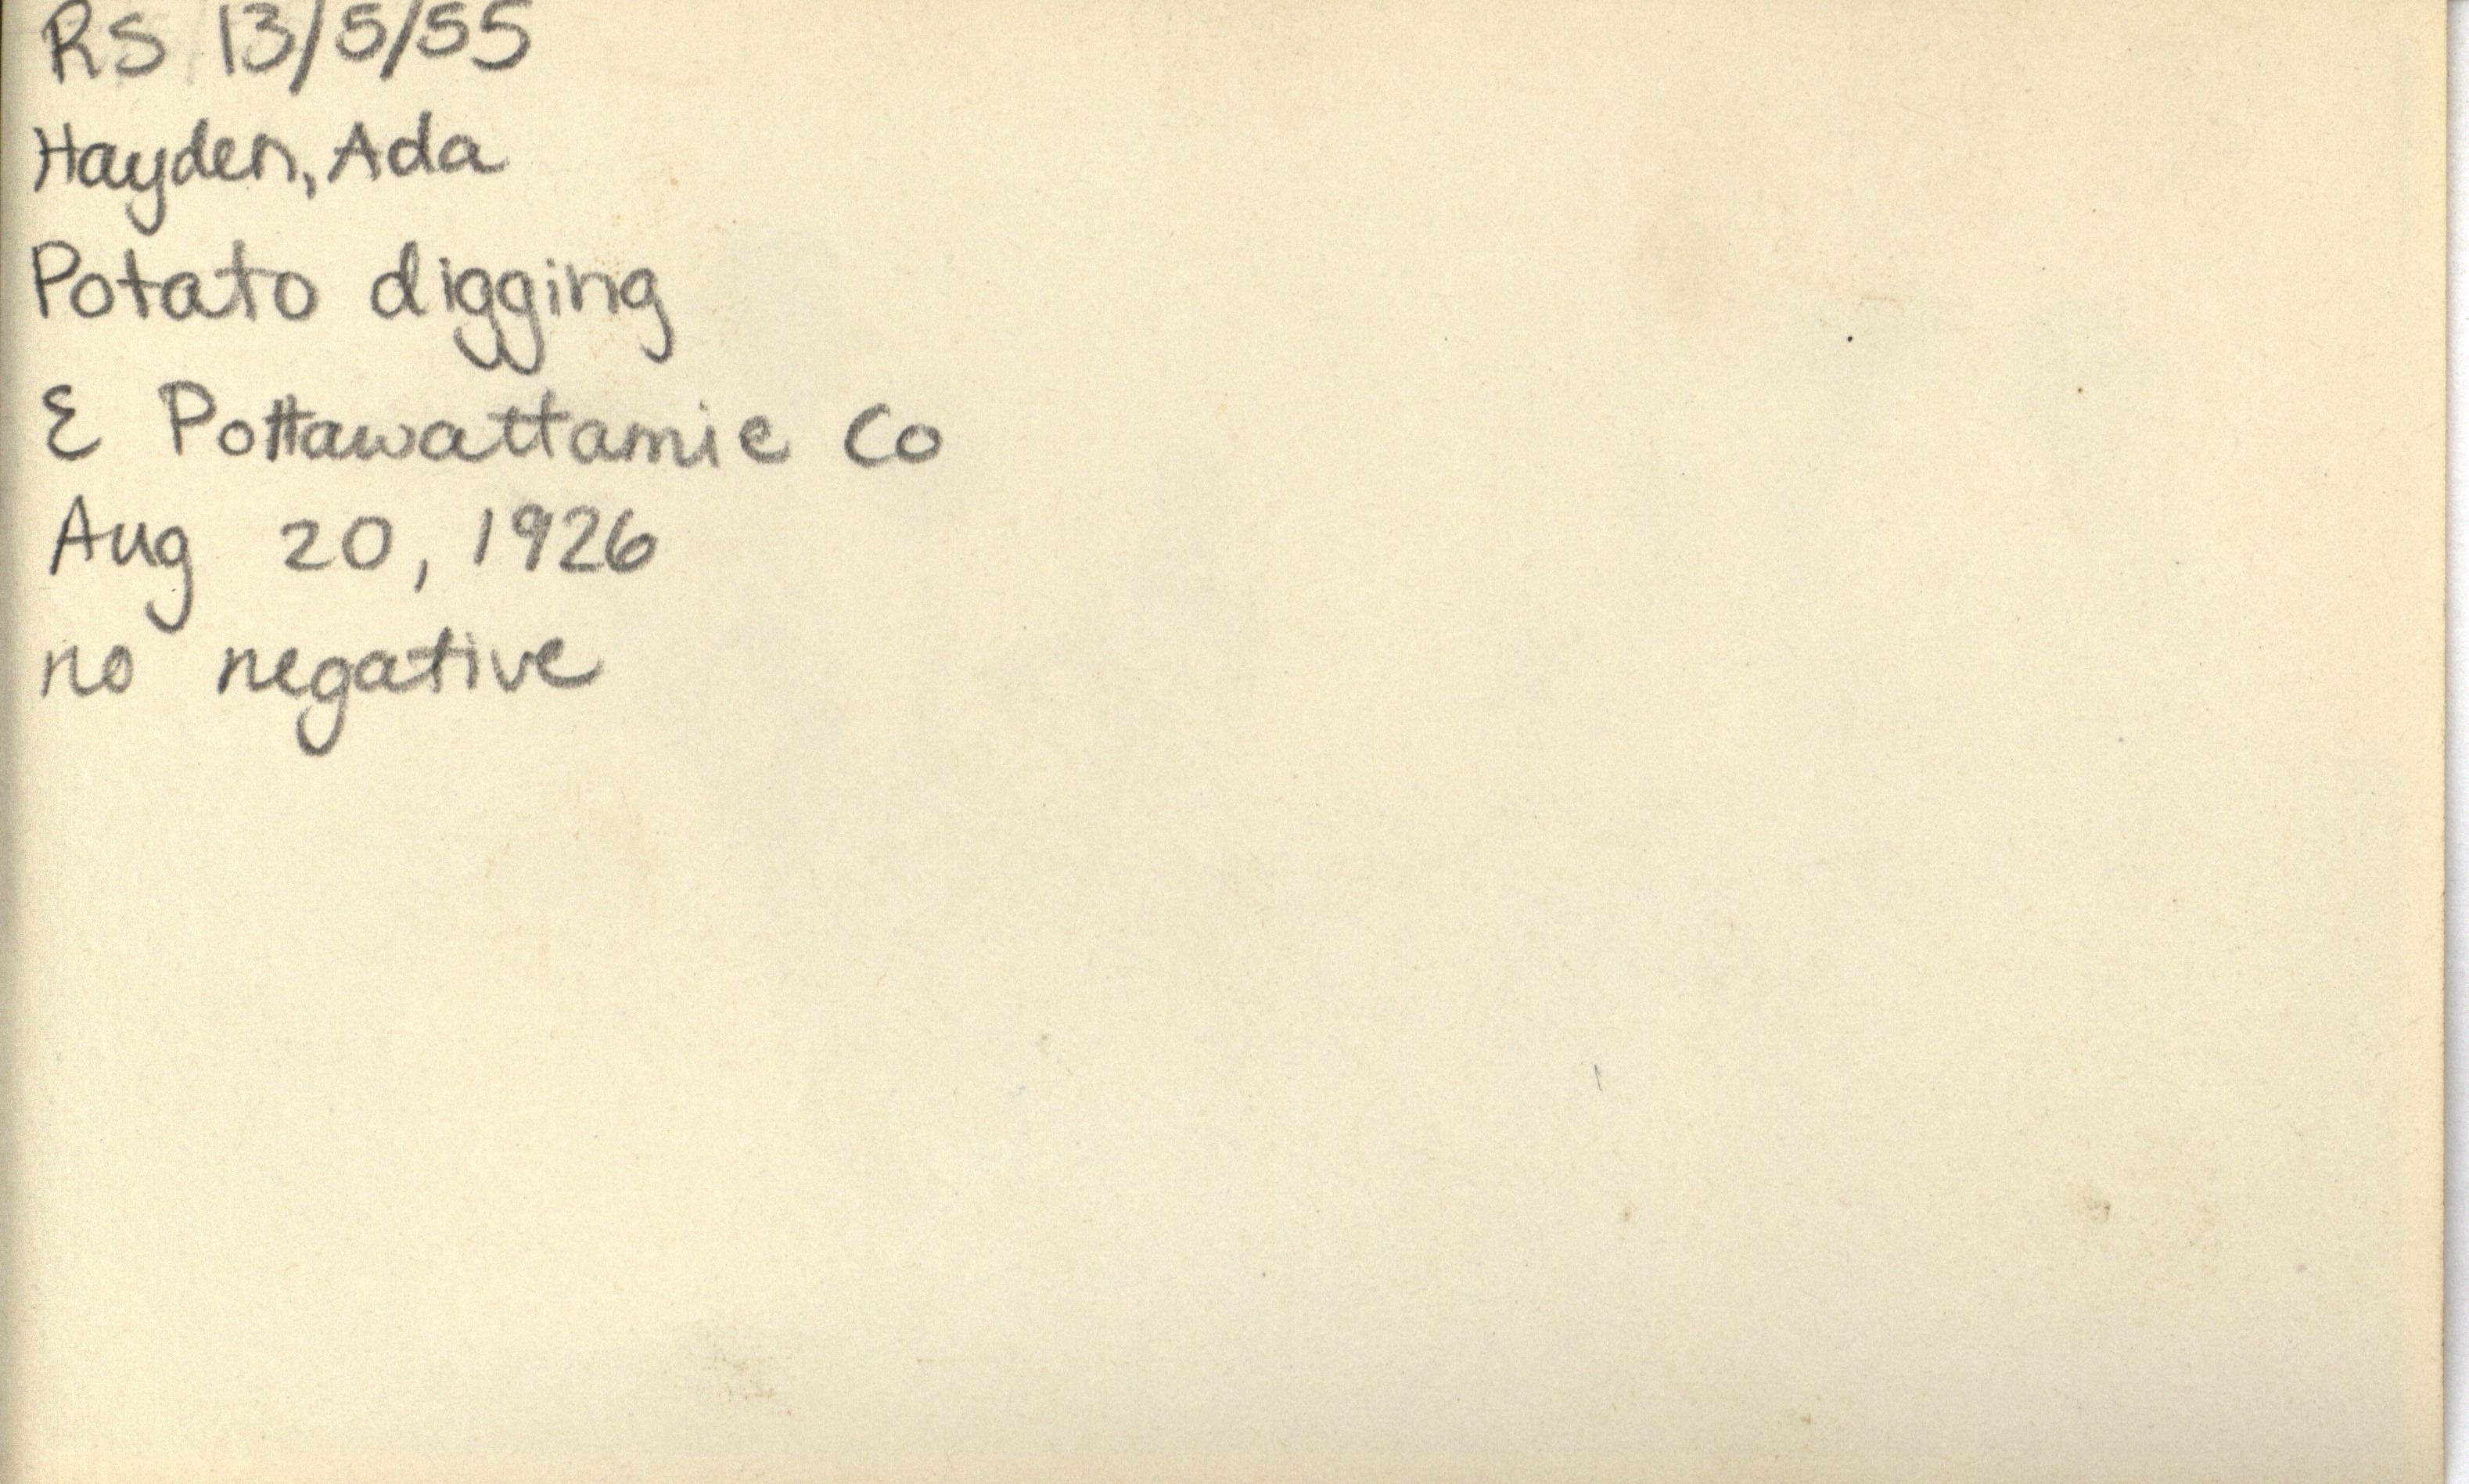 RS 13/5/55
Hayden, Ada
Potato digging
E Pottawattamie Co
Aug 20, 1926
no negative